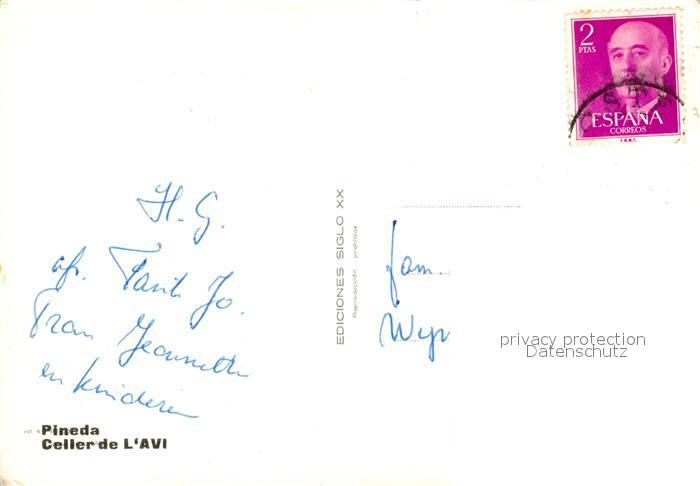 2
PTAS
ESPAÑA
CORREOS
F.N.M.T.
H. G.
afz. Tante Jo.
Frans Jeannette
en kinderen
EDICIONES SIGLO XX
Reproducción prohibida
fam
privacy protection
Datenschutz
Pineda
Celler de L'AVI